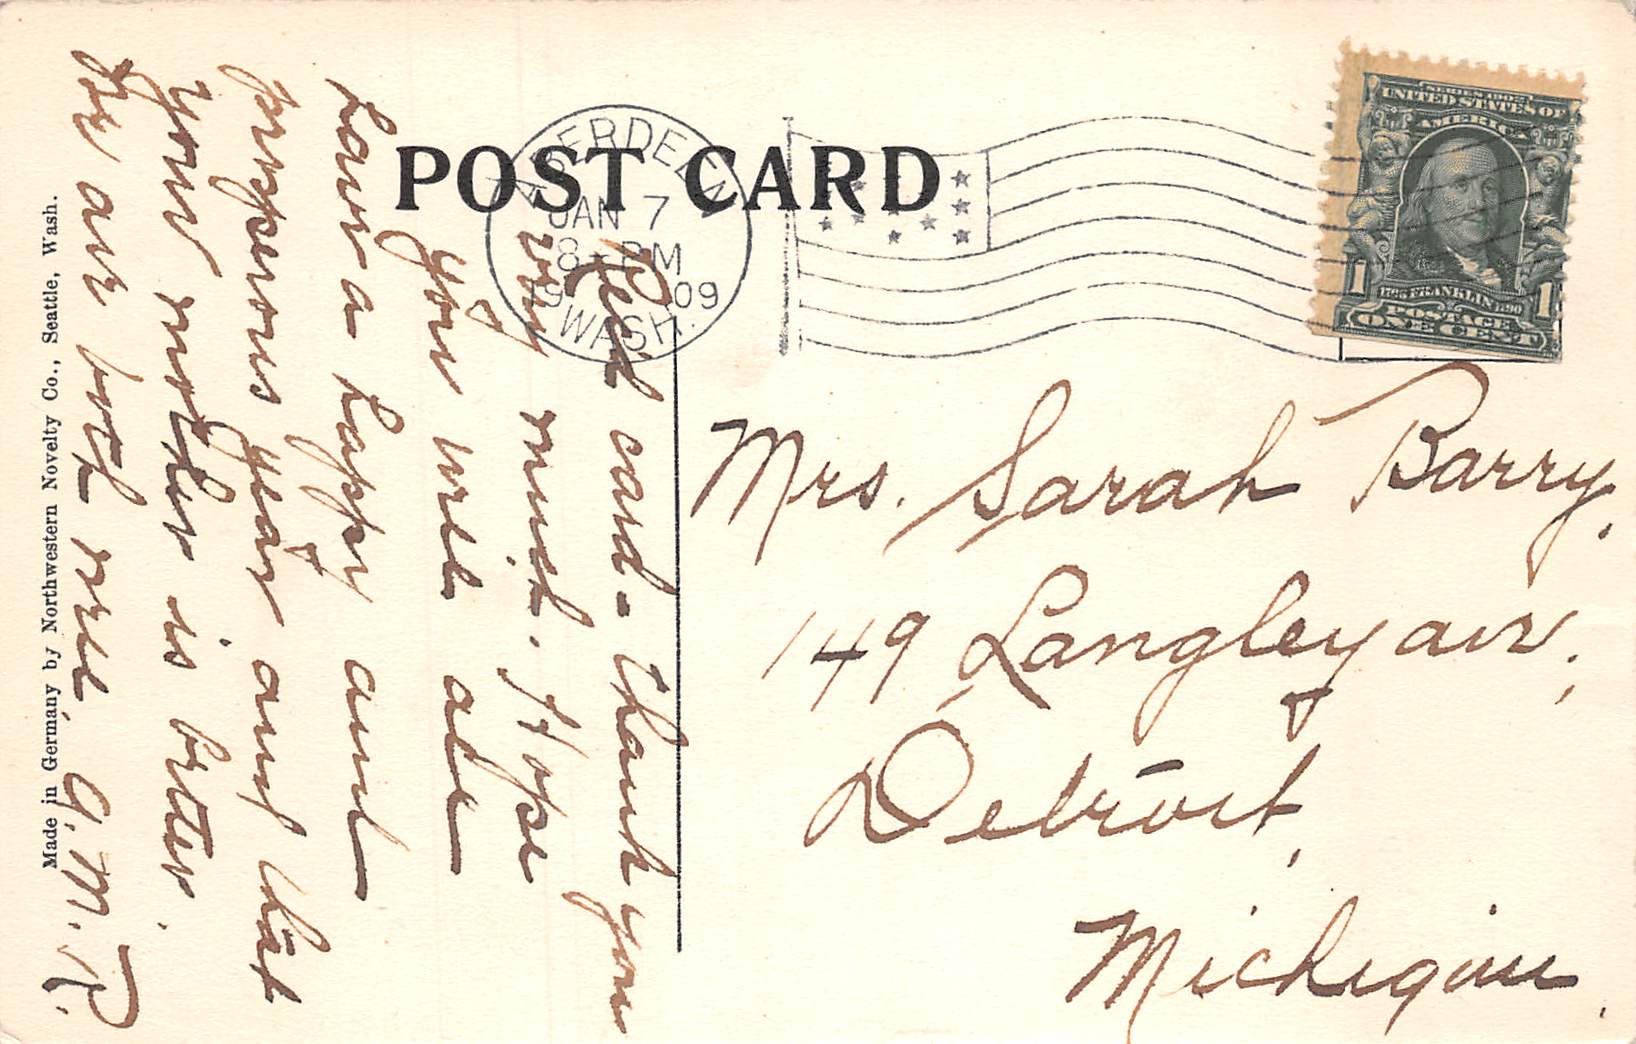 POST CARD
ABERDEEN
JAN 7
8 - PM
1909
WASH.
SERIES 1902
UNITED STATES OF
AMERICA
1706 FRANKLIN 1790
POSTAGE
1 ONE CENT 1
Rec'd card - Thank you
very much. Hope
you will all
have a happy and
prosperous year and that
your mother is better.
We are both well. A. M. R.
Mrs. Sarah Barry,
149 Langley ave,
Detroit,
Michigan.
Made in Germany by Northwestern Novelty Co., Seattle, Wash.